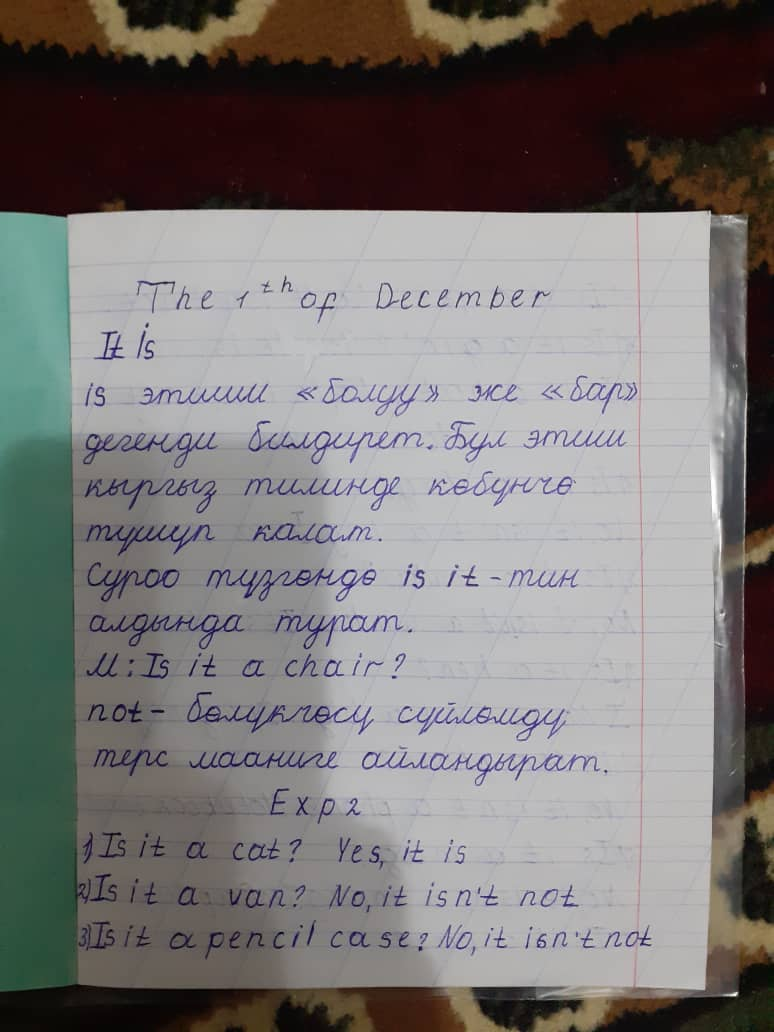 The 1th of December
It is
is этиши «болуу» же «бар»
дегенди билдирет. Бул этиш
кыргыз тилинде көбүнчө
түшүп калат.
Суроо түзгөндө is it-тин
алдында турат.
М: Is it a chair?
not- бөлүкчөсү сүйлөмдү
терс мааниге айландырат.
Exp 2
1) Is it a cat? Yes, it is
2) Is it a van? No, it isn't not
3) Is it a pencil case? No, it isn't not